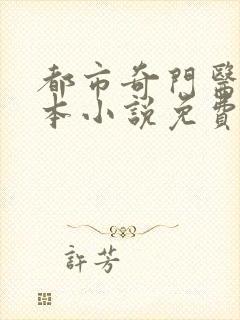 都市奇門醫
本小說免費
許芳